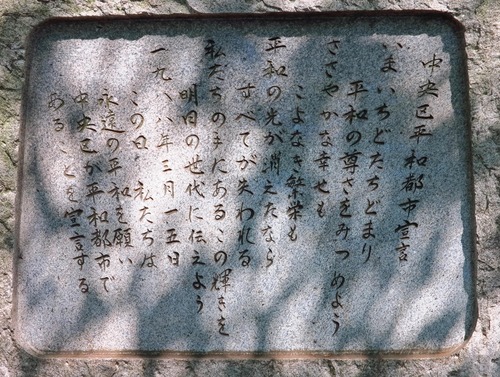 中央区平和都市宣言
いまいちどたちどまり
平和の尊さをみつめよう
ささやかな幸せも
こよなき繁栄も
平和の光が消えたなら
すべてが失われる
私たちの手にあるこの輝きを
明日の世代に伝えよう
一九八八年三月一五日
この日 私たちは
永遠の平和を願い
中央区が平和都市で
あることを宣言する